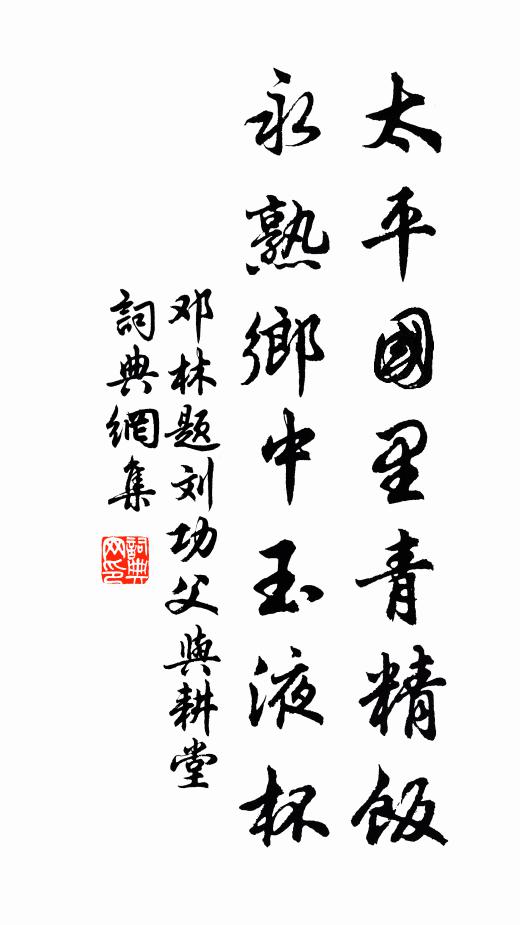 太平國里青精飯
永熟鄉中玉液杯
邓林题刘功父與耕堂
詞典網集
詞典網印